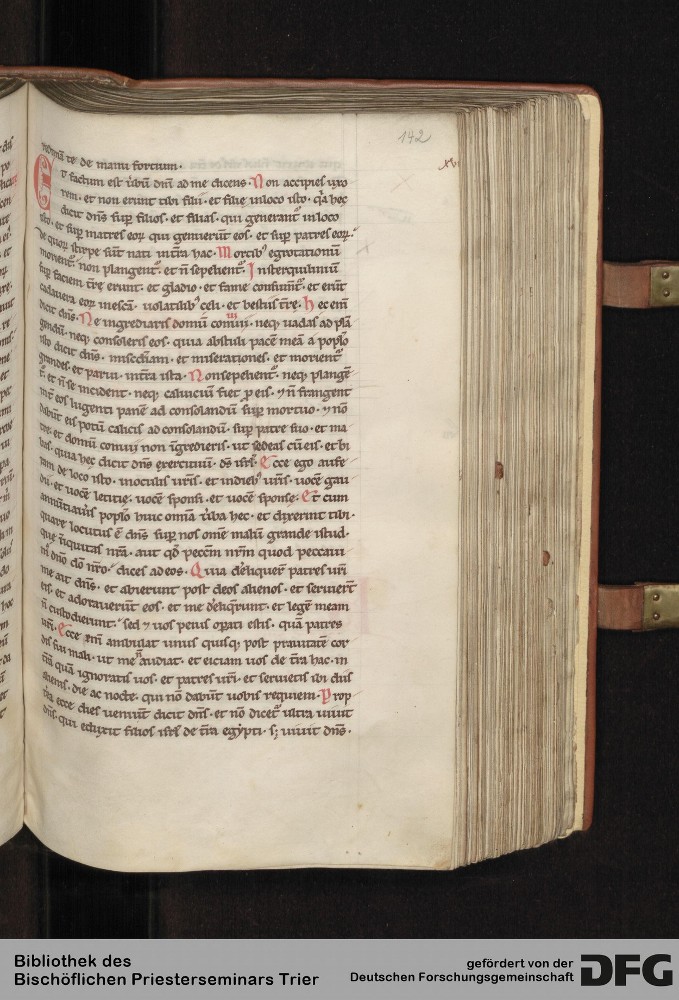 142
xvi
redimā te de manu fortium.
Et factum est v̄bū dn̄i ad me dicens. Non accipies uxo
rem. et non erunt tibi filii. et filie in loco isto. q̄a hec
dicit dn̄s sup̄ filios. et filias. qui generant᷑ in loco
isto. et sup̄ matres eoꝝ que genuerunt eos. et sup̄ patres eoꝝ.
de quoꝝ stirpe sūt nati in t̄ra hac. Mortib᷒ egrotationū
morient᷑. non plangent᷑. et n̄ sepelient᷑. In sterquiliniū
sup̄ faciem t̄re erunt. et gladio. et fame consument᷑. et erūt
cadavera eoꝝ in escā. volatilib᷒ celi. et bestiis t̄re. hec eni᷑
dicit dn̄s. Ne ingrediaris domū conuiuii. neq; uadas ad plā
gendū. neq; consoleris eos. quia abstuli pacē meā a popl̄o
isto dicit dn̄s. misc̄diam. et miserationes. et morient᷑
grandes. et parui. in t̄ra ista. Non sepelient᷑. neq; plangē
t᷑. et n̄ se incident. neq; caluicium fiet p̄ eis. ⁊ n̄ frangent
int̄ eos lugenti panē ad consolandū sup̄ mortuo. ⁊ nō
dabūt eis potū calicis ad consolandū. sup̄ patre suo. et ma
tre. et domū conuiuii non īgredieris. ut sedeas cū eis. et bi
bas. quia hec dicit dn̄s exercituū. ds̄ isrl̄. Ecce ego aufe
ram de loco isto. in oculis ur̄is. et in dieb᷒ ur̄is. uocē gau
dii. et uocē letitie. uocē sponsi. et uocē sponse. Et cum
annūtiaūis popl̄o huic omnia v̄ba hec. et dixerint tibi.
quare locutus ē dn̄s sup̄ nos om̄e malū grande istud.
que iniquitas nr̄a. aut qd̄ pecc̄m nr̄m quod peccaui
m᷒ dn̄o d̄o nr̄o. dices ad eos. Quia deliquer̄ patres ur̄i
me ait dn̄s. et abierunt post deos alienos. et seruierūt
eis. et adorauerūt eos. et me deliq̄runt. et legē meam
n̄ custodierunt. sed ⁊ uos peius opati estis. quā patres
ur̄i. Ecce eni᷑ ambulat unus quisq; post prauitatē cor
dis sui mali. ut me n̄ audiat. et eiciam uos de t̄ra hac. in
t̄rā quā ignoratis uos. et patres ur̄i. et seruietis ibi diis
alienis. die ac nocte. qui nō dabūt uobis requiem. Prop
t̄ea ecce dies ueniūt dicit dn̄s. et nō dicet᷑ ultra uiuit
dn̄s. qui eduxit filios isrl̄ de t̄ra egypti. s; uiuit dn̄s.
Bibliothek des
Bischöflichen Priesterseminars Trier
gefördert von der
Deutschen Forschungsgemeinschaft
DFG